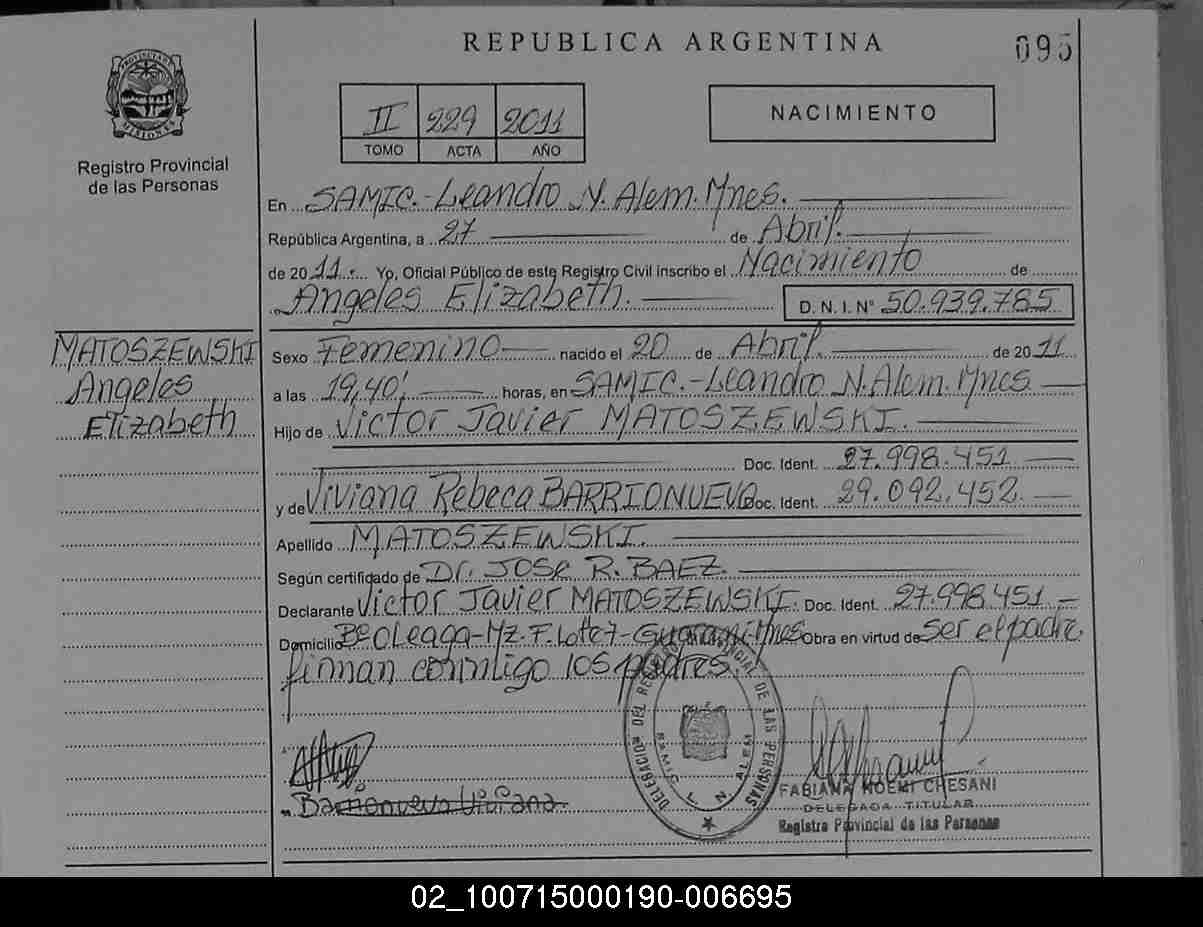 REPUBLICA ARGENTINA
095
PROVINCIA DE MISIONES
Registro Provincial
de las Personas
II 229 2011
TOMO ACTA AÑO
NACIMIENTO
En SAMIC.-Leandro N. Alem. Mnes.
República Argentina, a 27 de Abril.
de 2011. Yo, Oficial Público de este Registro Civil inscribo el Nacimiento de
Angeles Elizabeth. D.N.I.Nº 50.939.785
MATOSZEWSKI
Angeles
Elizabeth
Sexo Femenino nacido el 20 de Abril. de 2011
a las 19,40' horas, en SAMIC.-Leandro N. Alem. Mnes
Hijo de Victor Javier MATOSZEWSKI.
Doc. Ident. 27.998.451
y de Viviana Rebeca BARRIONUEVO Doc. Ident. 29.092.452.
Apellido MATOSZEWSKI.
Según certificado de Dr. JOSE R. BAEZ.
Declarante Victor Javier MATOSZEWSKI. Doc. Ident. 27.998.451
Domicilio Bº Oleaga-Mz. F. Lote 7-Guarani-Mnes Obra en virtud de ser el padre,
firman conmigo los padres.
DELEGACION DEL REGISTRO PROVINCIAL DE LAS PERSONAS
SAMIC L. N. ALEM
Barrionuevo Viviana
FABIANA NOEMI CHESANI
DELEGADA TITULAR
Registro Provincial de las Personas
02_100715000190-006695